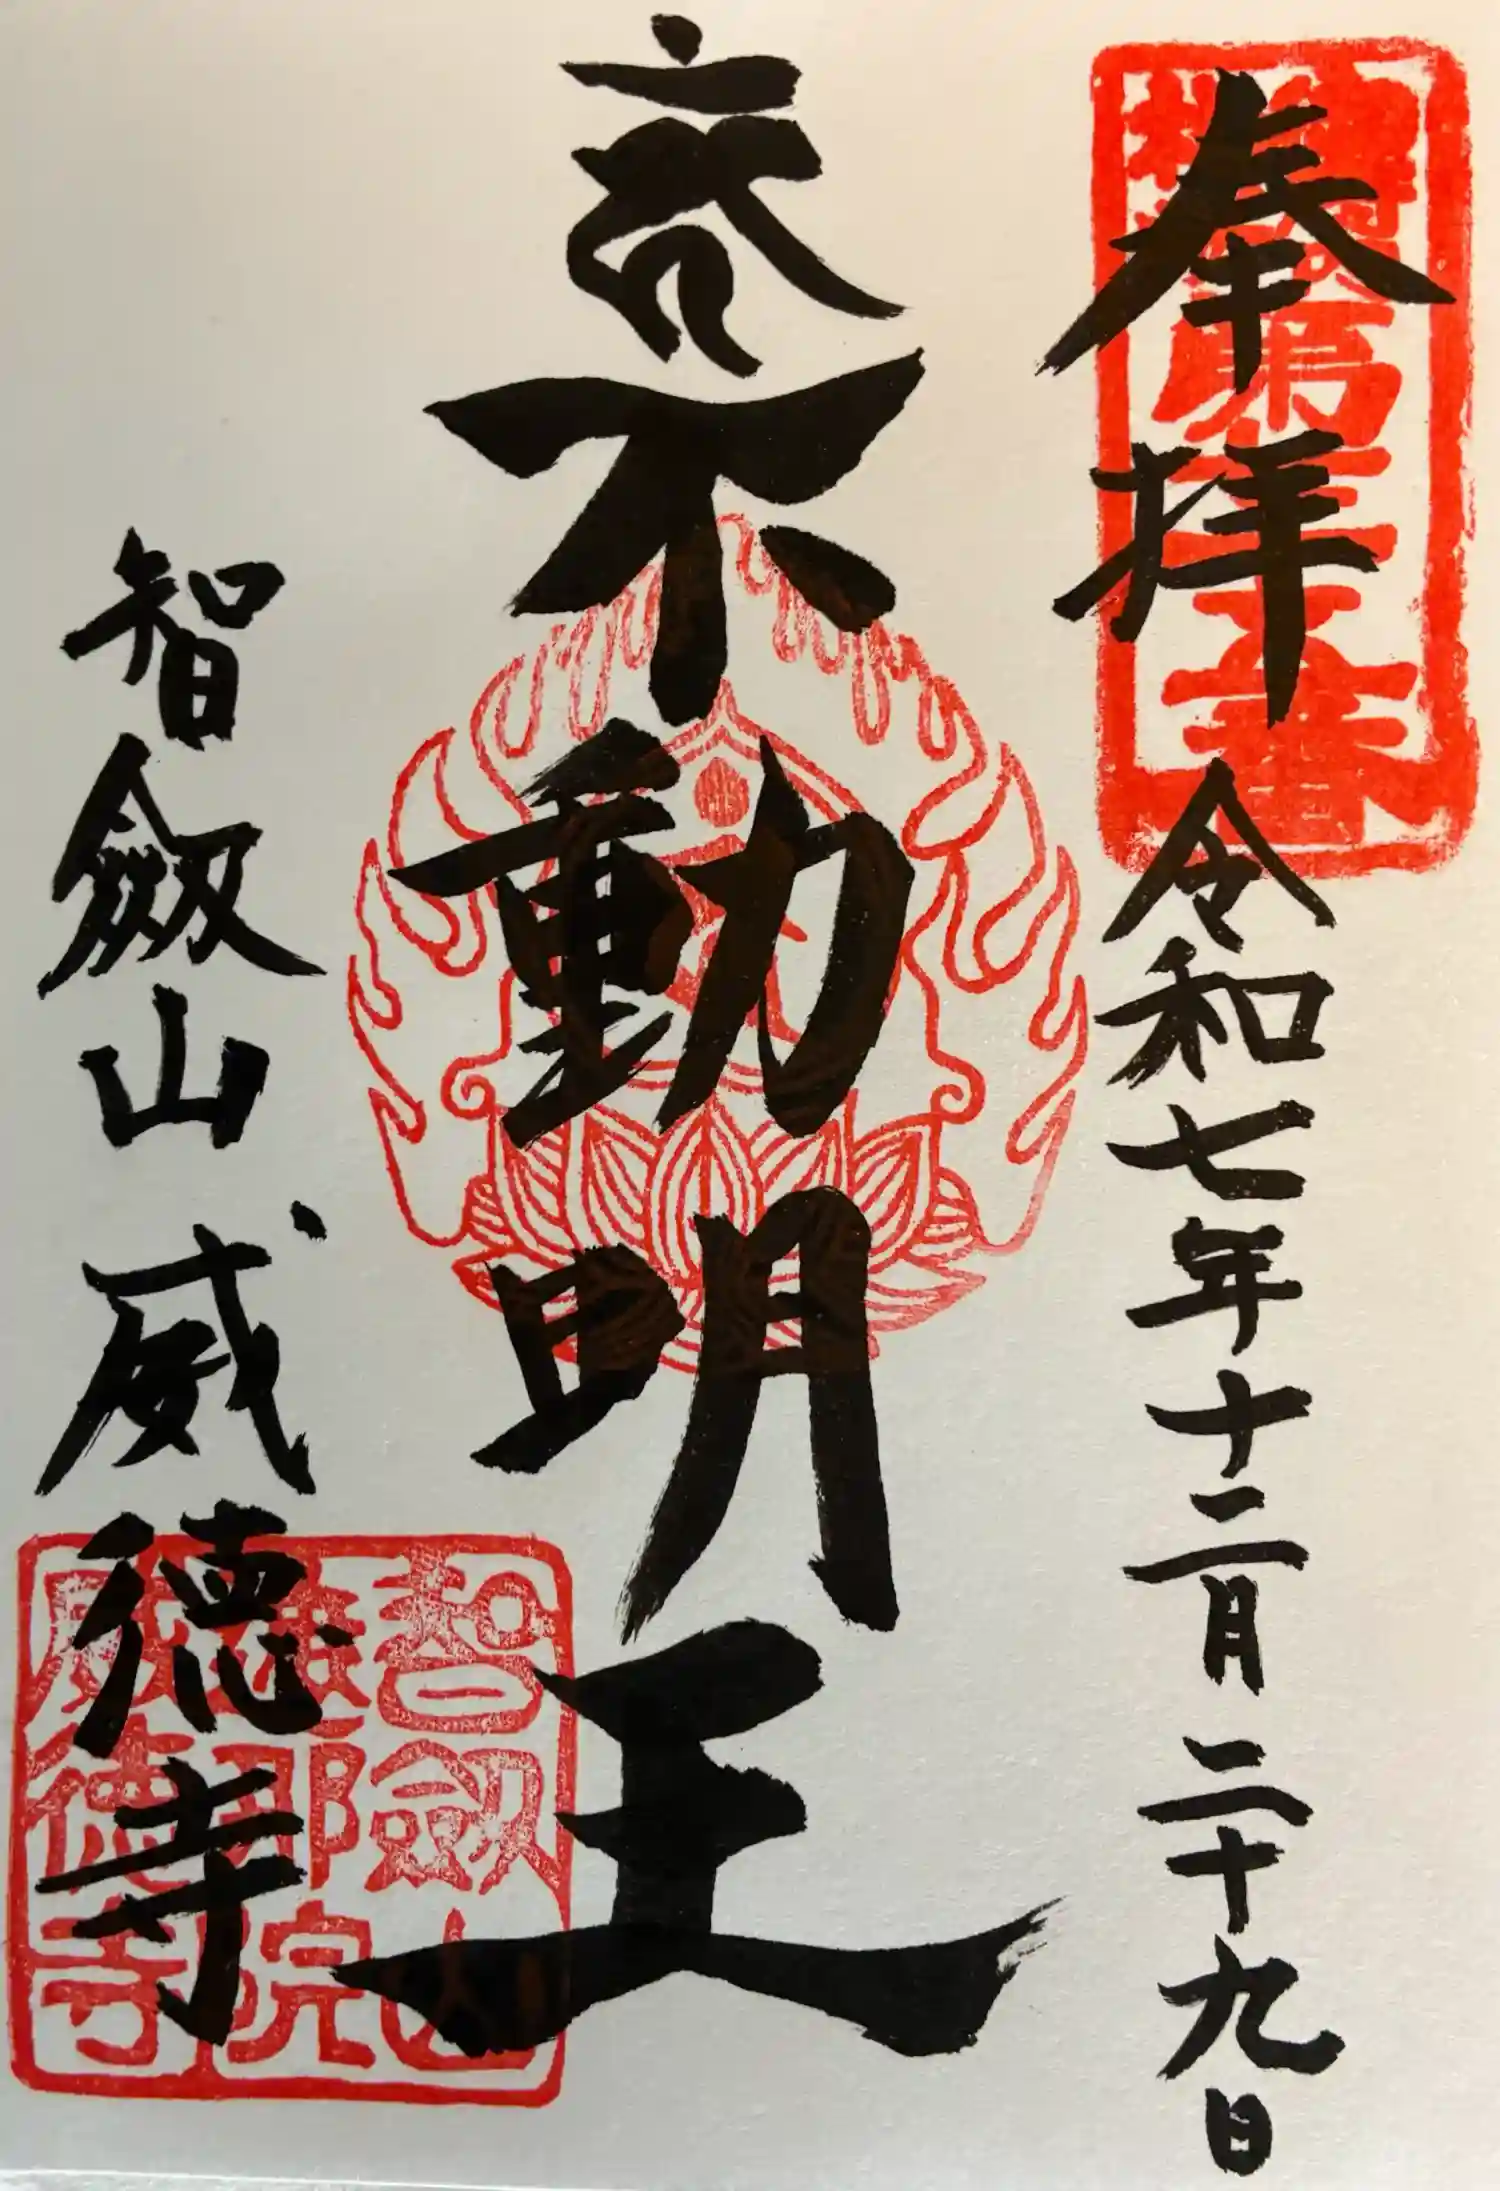 奉拝 令和七年十二月二十九日
不動明王
智劔山 威徳寺
智劔山
那院
威徳寺